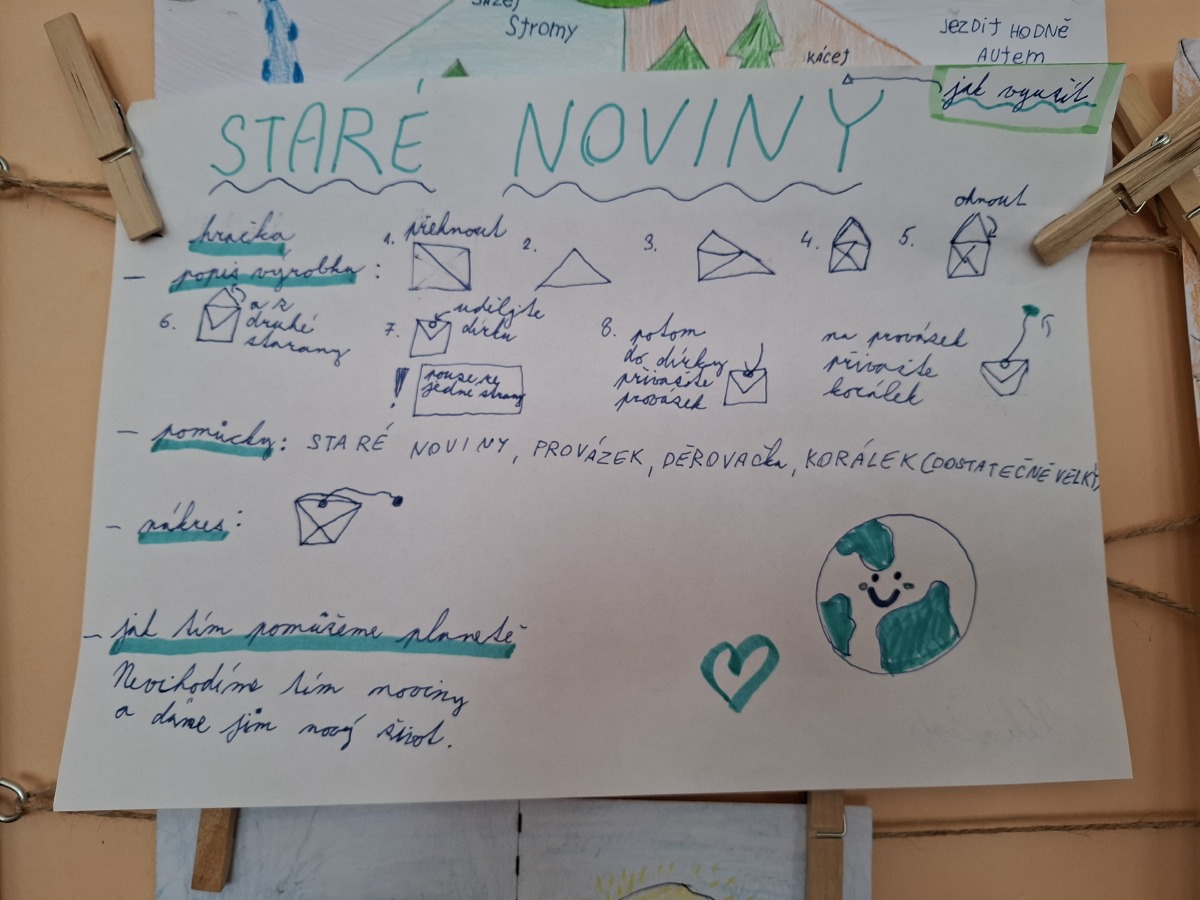 Stromy
KÁCEJ
JEZDIT HODNĚ
AUTEM
jak využít
STARÉ NOVINY
hračka
- popis výrobku:
1. přehnout
2.
3.
4.
5. ohnout
6. a z
druhé
strany
7. udělejte
dírku
! pouze na
jedné straně
8. potom
do dírky
přivažte
provásek
na provásek
přivažte
korálek
- pomůcky: STARÉ NOVINY, PROVÁZEK, DĚROVAČka, KORÁLEK (DOSTATEČNĚ VELKÝ)
- nákres:
- jak tím pomůžeme planetě
Nevihodíme tím noviny
a dáme jim nový život.